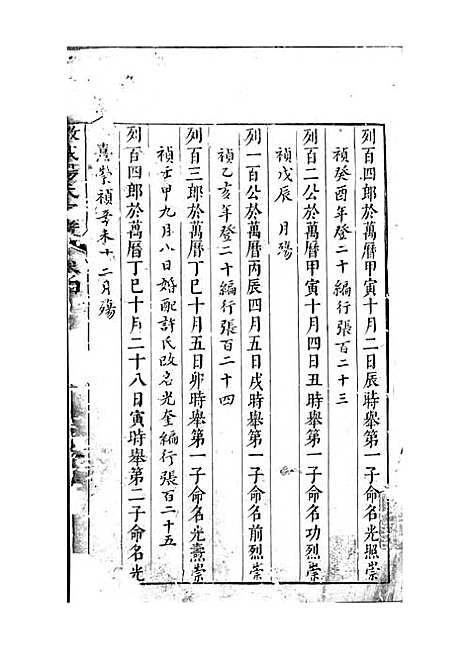 列百四郎於萬曆甲寅十月二日辰時舉第一子命名光照崇
禎癸酉年登二十編行張百二十三
列百二公於萬曆甲寅十月四日丑時舉第一子命名功烈崇
禎戊辰 月殤
列一百公於萬曆丙辰四月五日戌時舉第一子命名前烈崇
禎乙亥年登二十編行張百二十四
列百三郎於萬曆丁巳十月五日卯時舉第一子命名光燾崇
禎壬申九月八日婚配許氏改名光奎編行張百二十五
列百四郎於萬曆丁巳十月二十八日寅時舉第二子命名光
熹崇禎辛未十二月殤